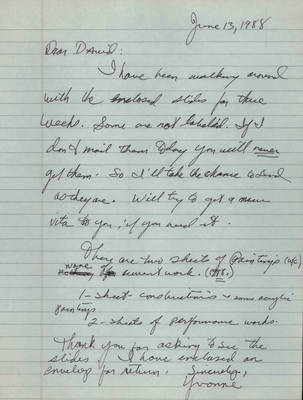 June 13, 1988
Dear David:
I have been walking around
with the enclosed slides for three
weeks. Some are not labeled. If I
don't mail them today you will never
get them. So I'll take the chance to send
as they are. Will try to get a new
vita to you, if you need it.
There are two sheets of paintings (w/c)
none of current work.
1 - sheet - constructions & some acrylic
paintings
2 - sheets of performance works.
Thank you for asking to see the
slides. I have enclosed an
envelop for return. Sincerely,
Yvonne